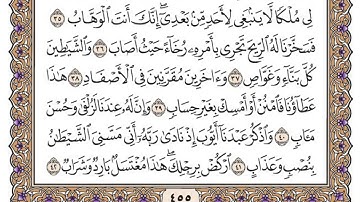 لِى مُلْكًا لَّا يَنۢبَغِى لِأَحَدٍ مِّنۢ بَعْدِىٓ ۖ إِنَّكَ أَنتَ ٱلْوَهَّابُ ٣٥
فَسَخَّرْنَا لَهُ ٱلرِّيحَ تَجْرِى بِأَمْرِهِۦ رُخَآءً حَيْثُ أَصَابَ ٣٦ وَٱلشَّيَٰطِينَ
كُلَّ بَنَّآءٍ وَغَوَّاصٍ ٣٧ وَءَاخَرِينَ مُقَرَّنِينَ فِى ٱلْأَصْفَادِ ٣٨ هَٰذَا
عَطَآؤُنَا فَٱمْنُنْ أَوْ أَمْسِكْ بِغَيْرِ حِسَابٍ ٣٩ وَإِنَّ لَهُۥ عِندَنَا لَزُلْفَىٰ وَحُسْنَ
مَـَٔابٍ ٤٠ وَٱذْكُرْ عَبْدَنَآ أَيُّوبَ إِذْ نَادَىٰ رَبَّهُۥٓ أَنِّى مَسَّنِىَ ٱلشَّيْطَٰنُ
بِنُصْبٍ وَعَذَابٍ ٤١ ٱرْكُضْ بِرِجْلِكَ ۖ هَٰذَا مُغْتَسَلٌۢ بَارِدٌ وَشَرَابٌ ٤٢
٤٥٥